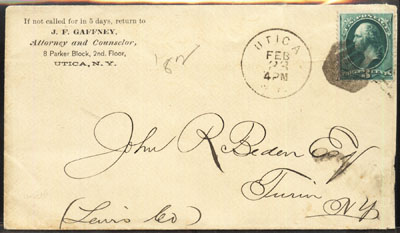 If not called for in 5 days, return to
J. F. GAFFNEY,
Attorney and Counselor,
8 Parker Block, 2nd. Floor,
UTICA, N. Y.
'82
UTICA
FEB
23
4PM
N.Y.
3
John R Beden Esq
Turin
N.Y.
(Lewis Co)